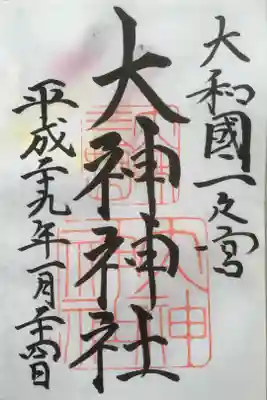 大和國一之宮
大神神社
平成二十九年一月二十四日
大神
神社